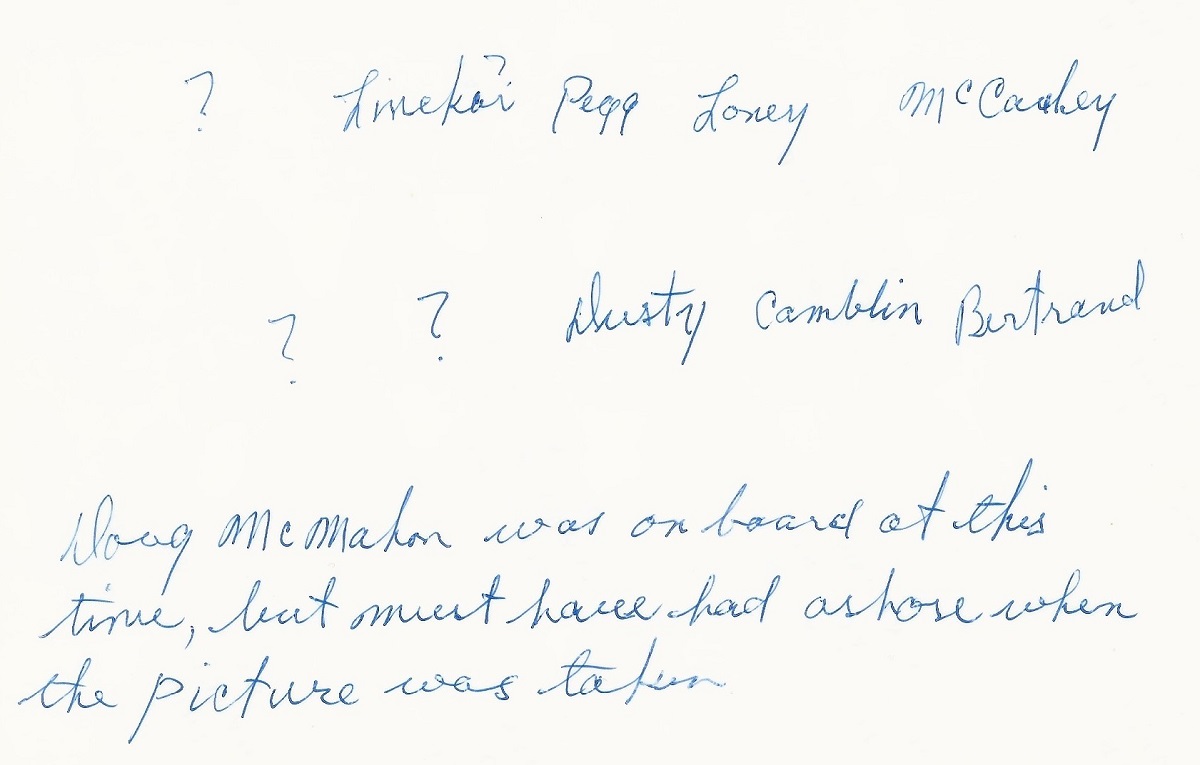 ? Linekar? Pegg Loney McCaskey
? ? Dusty Camblin Bertrand
Doug McMahon was on board at this
time, but must have had ashore when
the picture was taken